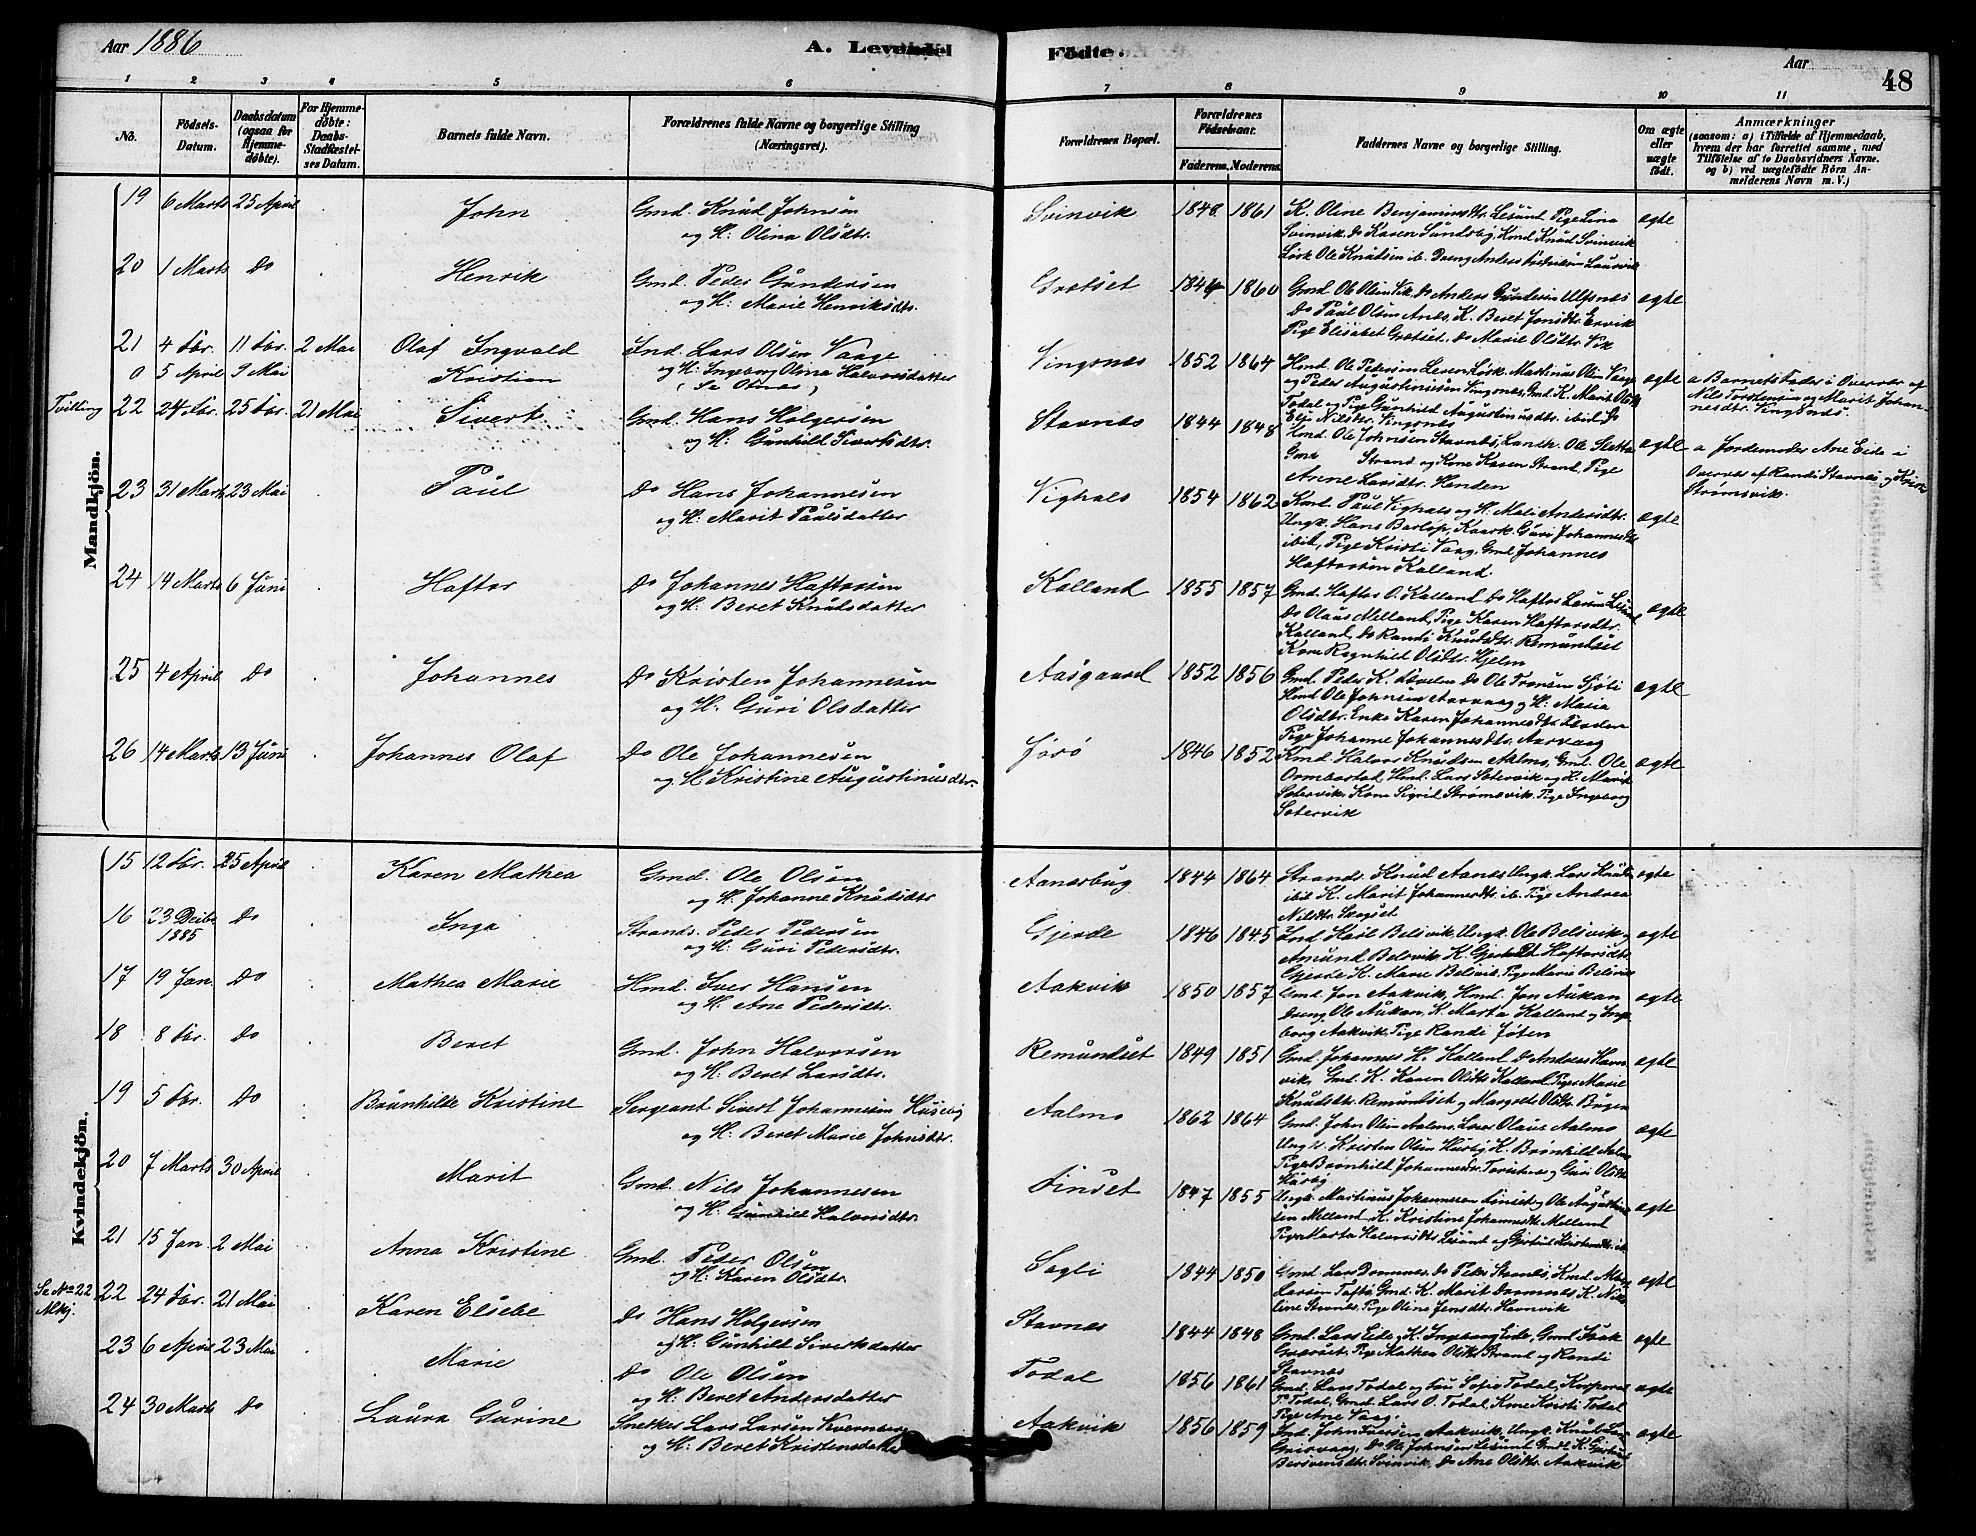 Aar 1886
A. Levende
Födte.
Aar
48
1 2 3 4 5 6
7 8 9 10 11
No.
Födsels-
Datum.
Daabsdatum
(ogsaa for
Hjemme-
döbte).
For Hjemme-
döbte:
Daabs-
Stadfæstel-
ses Datum.
Barnets fulde Navn.
Forældrenes fulde Navne og borgerlige Stilling
(Næringsvei).
Forældrenes Bopæl.
Forældrenes
Födselsaar.
Faderens. Moderens.
Faddernes Navne og borgerlige Stilling.
Om ægte
eller
uægte
födt.
Anmærkninger
(saasom: a) i Tilfælde af Hjemmedaab,
hvem der har forrettet samme, med
Tilföielse af to Daabsvidners Navne.
og b) ved uægtefödte Börn An-
melderens Navn m. V.)
Mandkjön.
19 6 Marts 25 April John Gmd. Knud Johnsen
og H. Olina Olsdtr.
Svinvik 1848 1861 K. Oline Benjaminsdtr. Lesund Pige Lina
Svinvik, do Karen Sundsby, Kmd Knud Svinvik
Lösk Ole Knudsen ib. Dreng Anders Fredriksen Laurvik
ægte
20 1 Marts do Henrik Gmd. Peder Gundersen
og H. Marie Henriksdtr.
Grotset 1844 1860 Gmd. Ole Olsen Vik, do Anders Gundersen Ulfsnes
do Paul Olsen Anes, K. Beret Jonsdtr. Ervik
Pige Elisabet Grotset, do Marie Olsdtr. Vik
ægte
21 4 Fbr. 11 Fbr. 2 Mai Olaf Ingvald Ind. Lars Olsen Vaage
0 5 April 9 Mai Kristian og H. Ingeborg Olina Halvorsdatter
Vingsnes 1852 1864 Hmd. Ole Petersen Lesen, Lösk. Mathinus Olsen Vaage
og Peder Augustinussen Vingsnes, Gmd. K. Marit Olsdtr
Todal og Pige Gunhild Augustinusdtr. ibid. do
Eli Nilsdtr. Vingsnes
ægte
a Barnets Fader i Overvær af
Nils Torstensen og Marit Johan-
nesdtr. Vingsnes.
Tvilling 22 24 Fbr. 25 Fbr. 21 Mai Sivert Gmd. Hans Holgersen
og H. Gunhild Sivertsdtr.
Stavnes 1844 1848 Hmd. Ole Johnsen Stavnes, Landh. Ole Sletta
Gmd Strand og Kone Karen Strand, Pige
Arene Larsdtr. Henden
ægte
a Jordemoder Ane Eide i
Overvær af Randi Stavnes og
Strømsvik.
23 31 Marts 23 Mai Paul do Hans Johannesen
og H. Marit Paulsdatter
Vighals 1854 1862 Kmd. Paul Vighals og H. Mali Andersdtr.
Ungk. Hans Barlop, Kaark. Guri Johannesdtr
ibid, Pige Kristi Vaag, Gmd Johannes
Haftorsen Kalland.
ægte
24 14 Marts 6 Juni Haftor do Johannes Haftorsen
og H. Beret Knudsdatter
Kalland 1855 1857 Gmd. Haftor O. Kalland do Haftor Larsen Lesund
do Olaus Melland, Pige Karen Haftorsdtr.
Kalland, do Randi Knudsdtr. Remundset
Kone Ragnhild Olsdtr. Hjelen
ægte
25 4 April do Johannes do Kristen Johannesen
og H. Guri Olsdatter
Aasgaard 1852 1856 Gmd. Peder K. do Ole Tronsen Sjöli
Hmd Ole Johnsen Aarvaag og H. Maria
Olsdtr. Enke Karen Johannesdtr.
Pige Johanne Johannesdtr. Aarvaag
ægte
26 14 Marts 13 Juni Johannes Olaf do Ole Johannesen
og H. Kristine Augustinusdtr.
Jørø 1846 1852 Kmd. Halvor Knudsen Aalmo, Gmd. Ole
Ormbostad, Hmd. Lars Sotervik og K. Marit
Sotervik, Kone Sigrid Strømsvik, Pige Ingeborg
Sotervik
ægte
Kvindekjön.
15 12 Fbr. 25 April Karen Mathea Gmd. Ole Olsen
og H. Johanne Knudsdtr
Aanesbug 1844 1864 Strands. Knud Aanes Ungk. Lars Knuds.
ibid K. Marit Johannesdtr. ib. Pige Andrea
Nilsdtr. Skogset
ægte
16 23 Decbr.
1885 do Inga Strands. Peder Pedersen
og H. Guri Pedersdtr.
Gjerde 1846 1845 Ind. Karl Belsvik, Ungk. Ole Belsvik og
Amund Belsvik K. Gjertrud Haftorsdtr.
Gjerde K. Marie Belsvik, Pige Marie Belsvik
ægte
17 19 Jan. do Mathea Marie Hmd. Iver Hansen
og H. Ane Pedersdtr.
Aakvik 1850 1857 Gmd. Jon Aakvik, Hmd. Jon Aukan
Dreng Ole Aukan, K. Marta Kalland og Inge-
borg Aakvik, Pige Randi Jøten
ægte
18 8 Fbr. do Beret Gmd. John Halvorsen
og H. Beret Larsdtr.
Remundset 1849 1851 Gmd. Johannes H. Kalland do Andreas Havn-
vik, Gmd. K. Karen Olsdtr Kalland Pige Marie
Knudsdtr. Remundset og Margrete Olsdtr. Bugen
ægte
19 5 Fbr. do Brunhilde Kristine Sergeant Sivert Johannesen Husby
og H. Beret Marie Johnsdtr.
Aalmo 1862 1864 Gmd. John Olsen Aalmo, Lærer Olaus Aalmo
Ungk. Kristen Olsen Husby K. Brønhild Aalmo
Pige Brønhild Johannesdtr. og Guri Olsdtr
Husby
ægte
20 7 Marts 30 April Marit Gmd. Nils Johannesen
og H. Gunhild Halvorsdtr.
Linset 1847 1855 Ungk. Martinus Johannesen Linset og Ole Augustinus-
sen Melland K. Kristine Johannesdtr. Melland
Pige Marta Halvorsdtr Lesund og Gjertrud Kristensdtr. ib
ægte
21 15 Jan. 2 Mai Anna Kristine Gmd. Peder Olsen
og H. Karen Olsdtr.
Sagli 1844 1850 Gmd. Lars Drommes do Peder Stavnes, Kmd.
Larsen Tafto Gmd K. Marit Drommes K. Nico-
line Stavnes, Pige Oline Jensdtr. Havnvik
ægte
Se No 22
Mkj. 22 24 Fbr. 21 Mai Karen Elsebe do Hans Holgersen
og H. Gunhild Sivertsdatter
Stavnes 1844 1848 Gmd. Lars Eide og K. Ingeborg Eide, Gmd Isak
Pige Mathea Olsdtr Strand og Randi
Stavnes
ægte
23 6 April 23 Mai Marie do Ole Olsen
og H. Beret Andersdatter
Todal 1856 1861 Gmd. Lars Todal og Fru Sofie Todal, Korporal
P. Todal, Gmd. Lars O. Todal, Kone Kristi Todal
Pige Ane Vaag.
ægte
24 30 Marts do Laura Gurine Snekker Lars Larsen Kvernberg
og H. Beret Kristensdatter
Aakvik 1856 1859 Ind. John Iversen Aakvik, Ungk. Knud
do Ole Johnsen Lesund Gmd. K. Gjertrud
Bersvensdtr. Svinvik, do Ane Olsdtr. Aakvik
ægte